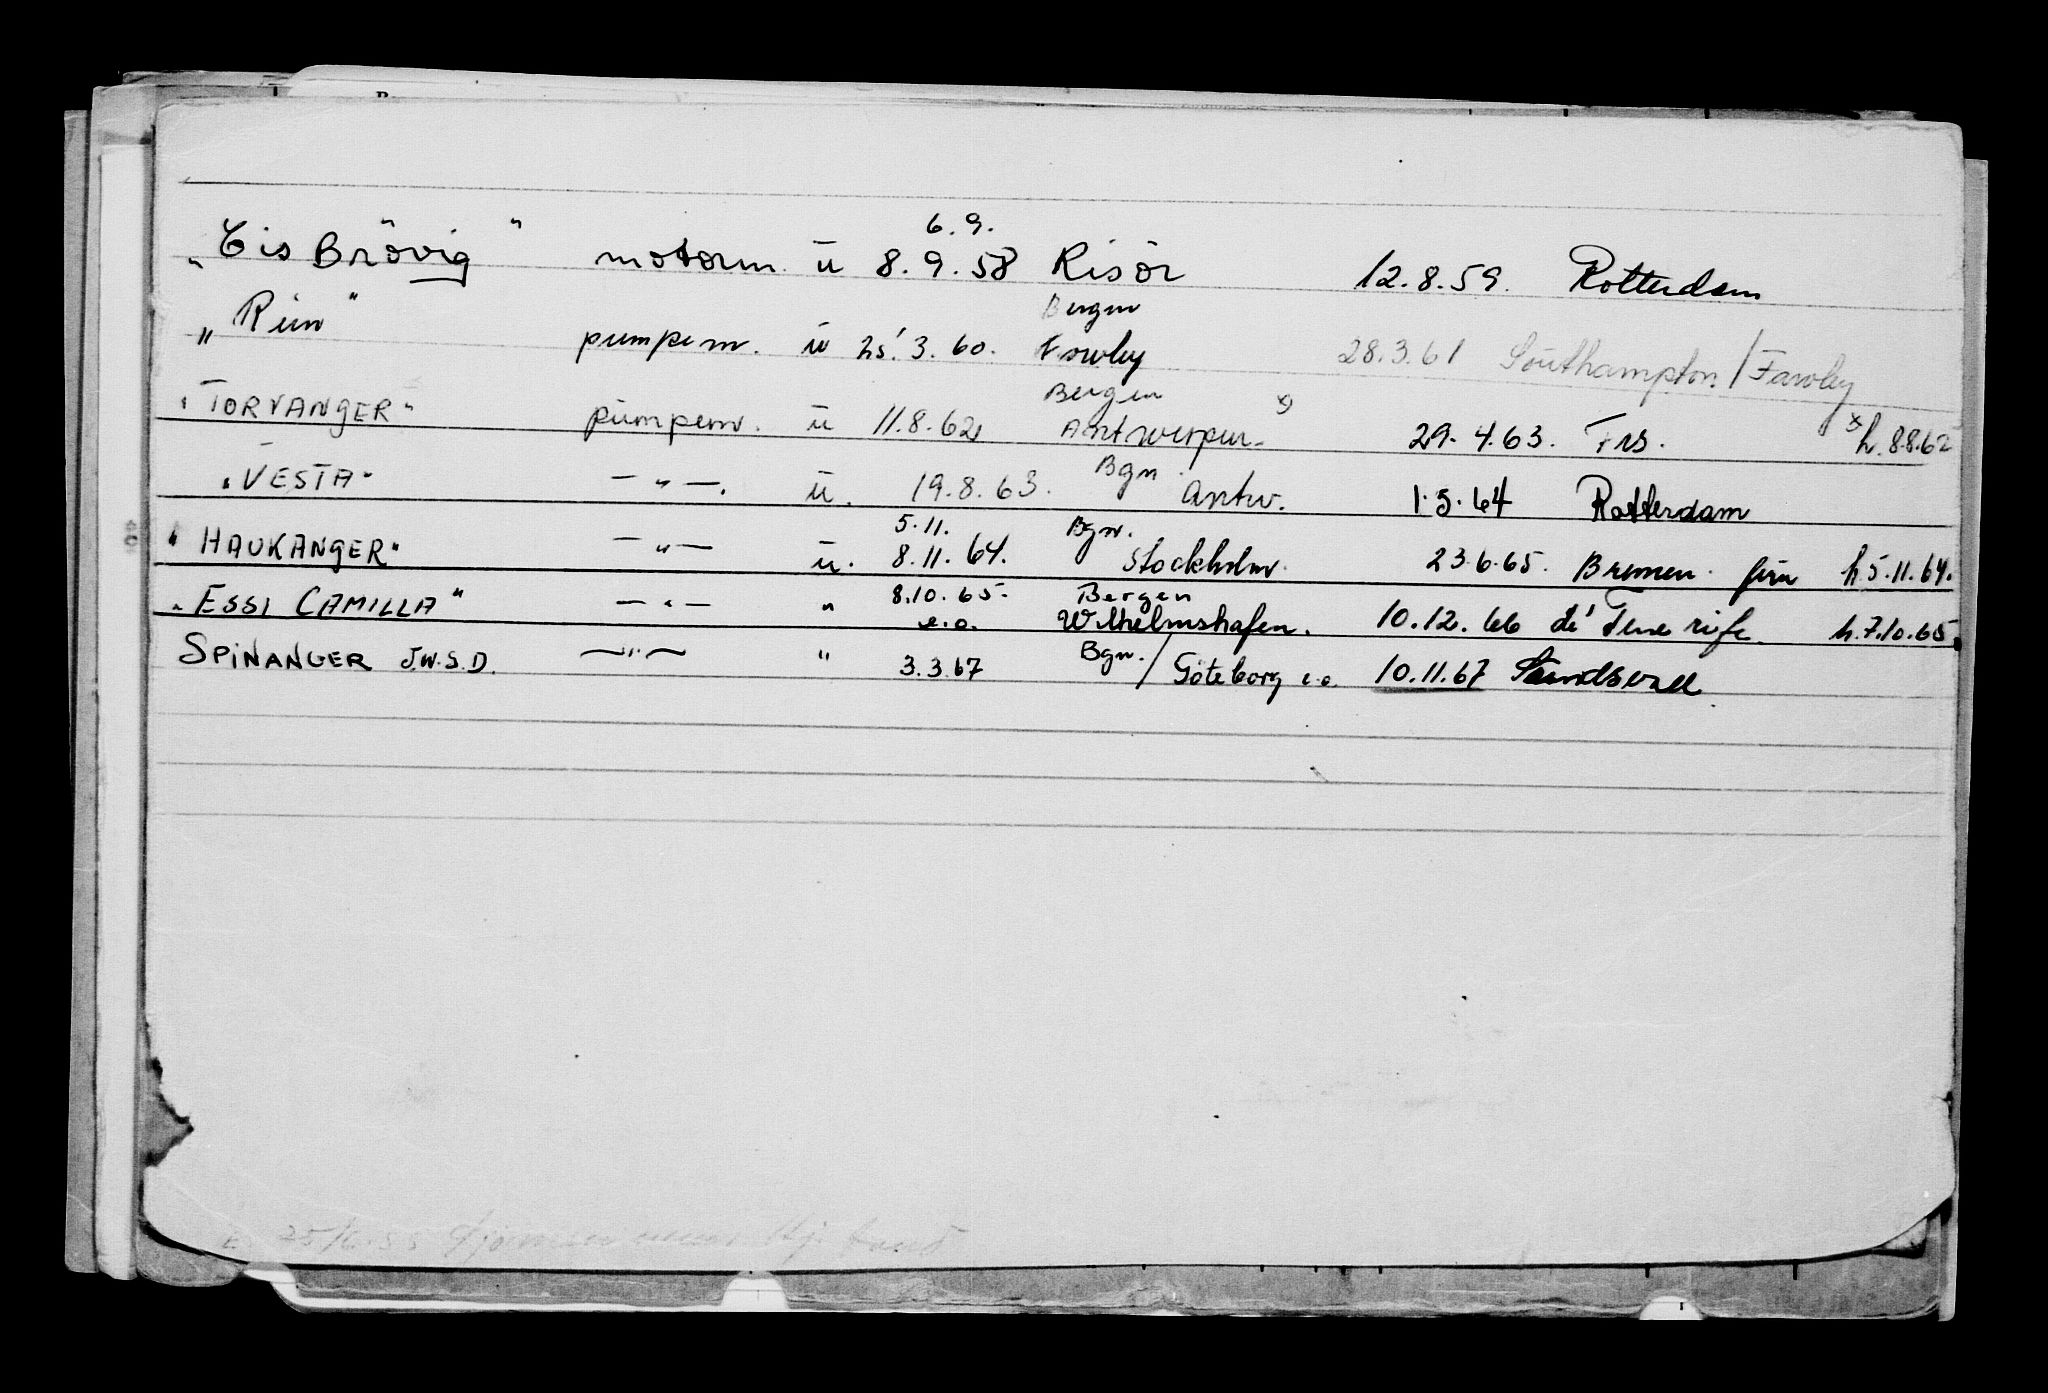 6.9.
„Cis Brövig" motorm. u 8.9.58 Risör 12.8.59. Rotterdam
Bergen
„Rim" pumpem. u 25.3.60. Fawley 28.3.61 Southampton/Fawley
Bergen
"TORVANGER" pumpem. u 11.8.62 Antwerpen x) 29.4.63. Frs. x h. 8.8.62
Bgn
"VESTA" — " —. u. 19.8.63. Antw. 1.5.64 Rotterdam
5.11. Bgn.
"HAUKANGER" — " — u. 8.11.64. Stockholm. 23.6.65. Bremen. h. 5.11.64.
8.10.65. Bergen
"ESSI CAMILLA" — " — " e.o. Wilhelmshafen. 10.12.66 Tenerife h. 7.10.65.
SPINANGER J.W.S.D. — " — " 3.3.67 Bgn./Göteborg e.o. 10.11.67 Sundsvall